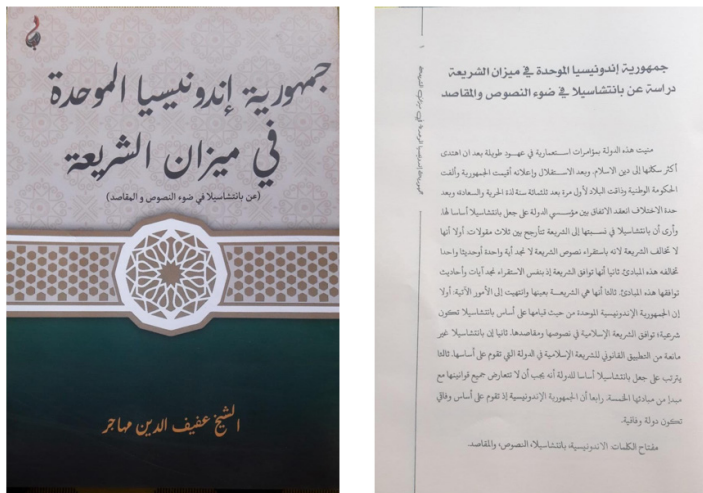 جمهورية إندونيسيا الموحدة
في ميزان الشريعة
(عن بانتشاسيلا في ضوء النصوص و المقاصد)
الشيخ عفيف الدين مهاجر
جمهورية إندونيسيا الموحدة في ميزان الشريعة
دراسة عن بانتشاسيلا في ضوء النصوص والمقاصد
منيت هذه الدولة بمؤامرات استعمارية في عهود طويلة بعد ان اهتدى
أكثر سكانها إلى دين الاسلام. وبعد الاستقلال وإعلانه أقيمت الجمهورية وألفت
الحكومة الوطنية وذاقت البلاد لأول مرة بعد ثلثمائة سنة لذة الحرية والسعادة، وبعد
حدة الاختلاف انعقد الاتفاق بين مؤسسي الدولة على جعل بانتشاسيلا أساسا لها.
وأرى أن بانتشاسيلا في نسبتها إلى الشريعة تتأرجح بين ثلاث مقولات. أولا أنها
لا تخالف الشريعة لانه باستقراء نصوص الشريعة لا نجد أية واحدة أوحديثا واحدا
تخالفه هذه المبادئ. ثانيا أنها توافق الشريعة إذ بنفس الاستقراء نجد آيات وأحاديث
توافقها هذه المبادئ. ثالثا أنها هي الشريعة بعينها وانتهيت إلى الأمور الآتية: أولا
إن الجمهورية الإندونيسية الموحدة من حيث قيامها على أساس بانتشاسيلا تكون
شرعية؛ توافق الشريعة الإسلامية في نصوصها ومقاصدها. ثانيا إن بانتشاسيلا غير
مانعة من التطبيق القانوني للشريعة الإسلامية في الدولة التي تقوم على أساسها. ثالثا
يترتب على جعل بانتشاسيلا أساسا للدولة أنه يجب أن لا تتعارض جميع قوانينها مع
مبدإ من مبادئها الخمسة. رابعا أن الجمهورية الإندونيسية إذ تقوم على أساس وفاقي
تكون دولة وفاقية.
مفتاح الكلمات: الاندونيسية، بانتشاسيلا، النصوص، والمقاصد.